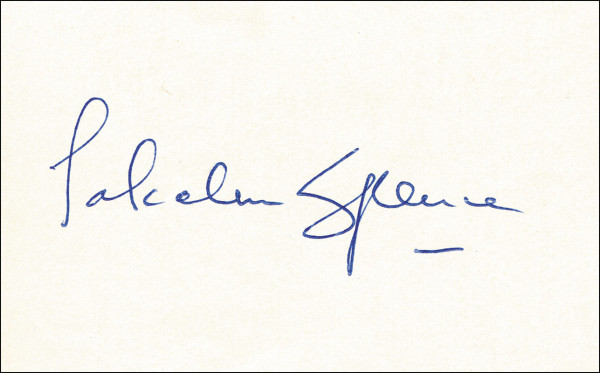 Malcolm Spence